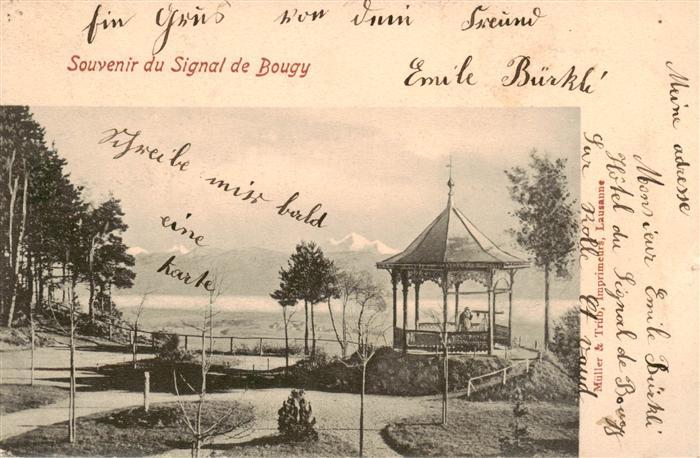 Ein Grus von dem Freund
Emile Bürkli
Souvenir du Signal de Bougy
Schreibe mir bald
eine
Karte
Meine adresse
Monsieur Emile Bürkli
Hôtel du Signal de Bougy
Sur Rolle Ct Vaud
Müller & Trüb, Imprimeurs, Lausanne